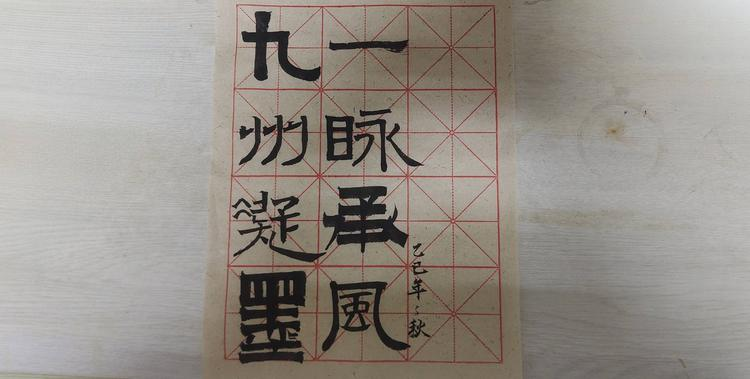 九州凝墨
一脉承風
乙巳年之秋